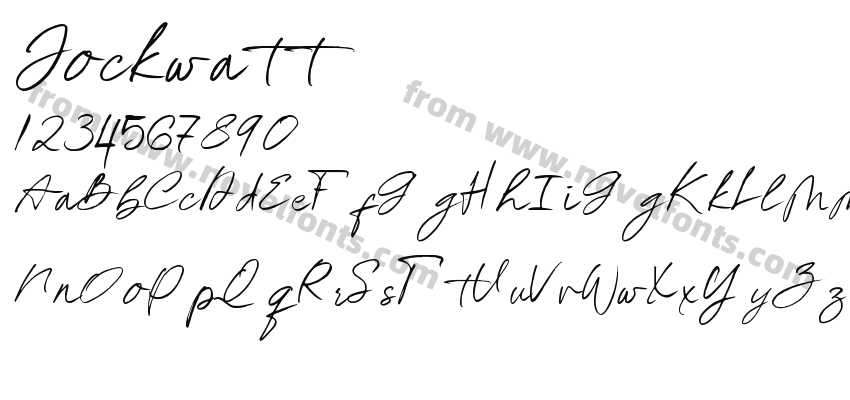 Jockwatt
1234567890
AaBbCcDdEeF fG gHhIiG gKkLlMm
NnOoP pQ qRrSsT tUuVvWwXxY yZz
from www.novelfonts.com
from www.novelfonts.com